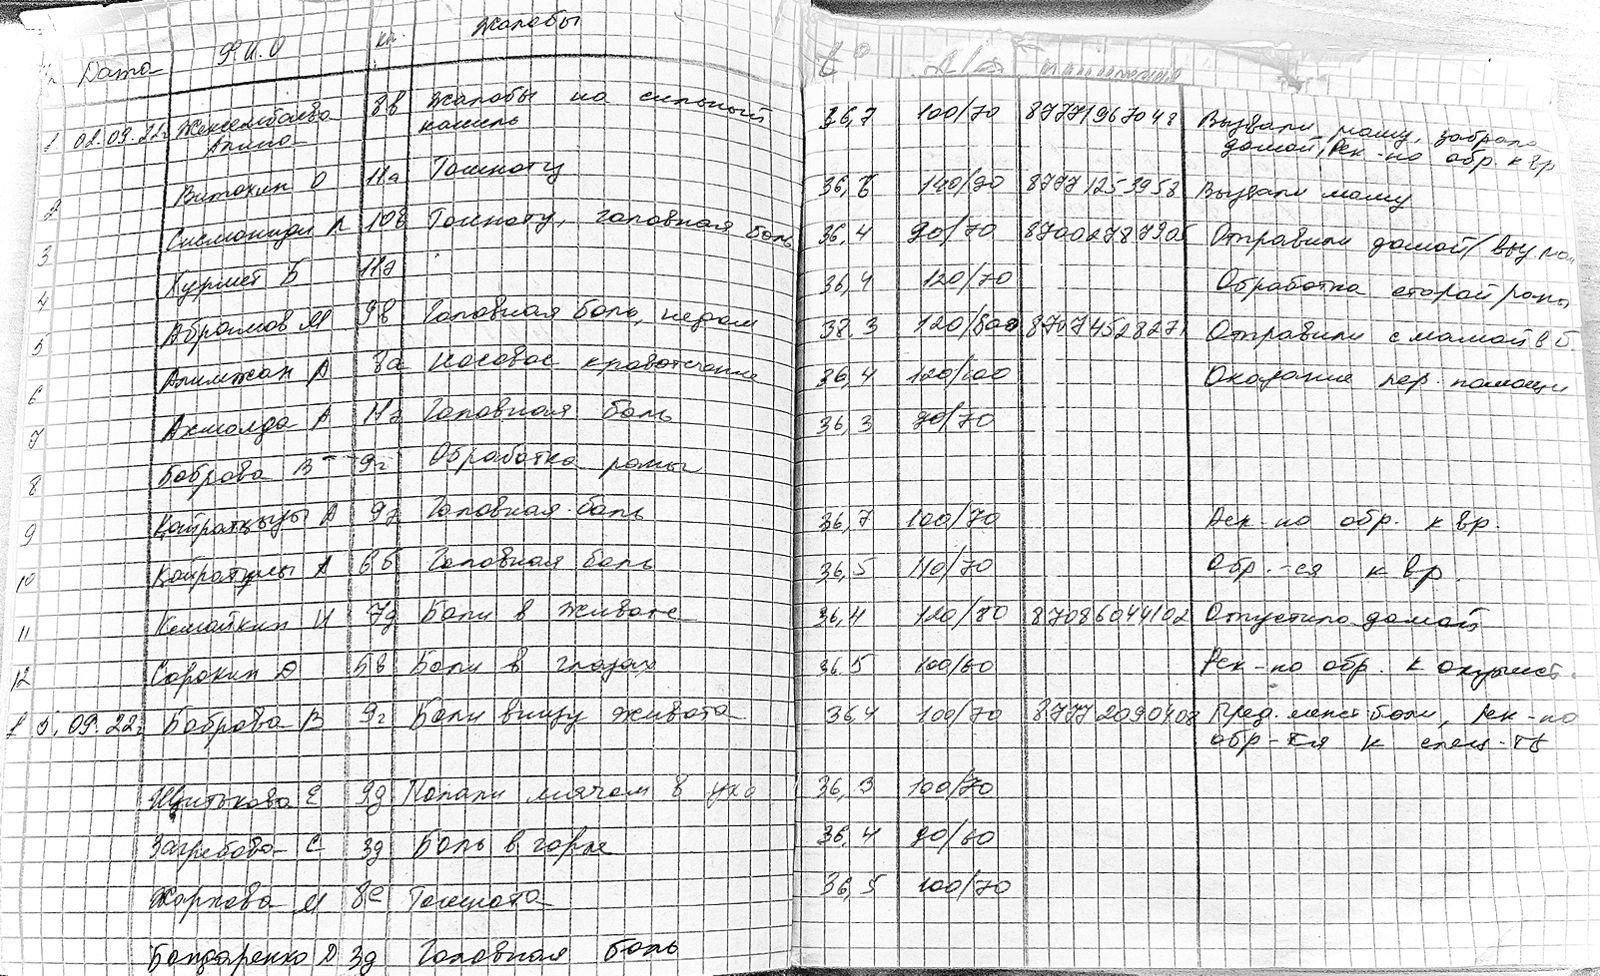 Дата Ф.И.О кл. Жалобы t° А/Д
1 02.09.22г Жексембаева 8в Жалобы на сильный 36,7 100/70 87771967048 Вызвали маму, забрала
Алина кашель домой, Рек-но обр. к вр
2 Витохин О 11а Тошноту 36,6 120/90 87771253958 Вызвали маму
3 А 10в Тошноту, головная боль 36,4 90/70 87002787905 Отправили домой/
4 Хурмет Б 11г 36,4 120/70 Обработка старой раны
5 Абраимов М 9в Головная боль, недом 38.3 120/80 87074528271 Отправили с мамой в
6 Алимжан А 8а Носовое кровотечение 36,4 120/100 Оказание пер. помощи
7 Акмолда А 11г Головная боль 36,3 90/70
8 Боброва В 9г Обработка раны
9 Қайратқызы А 9г Головная боль 36,7 100/70 Рек-но обр. к вр.
10 А 6б Головная боль 36,5 110/70 Обр.-ся к вр.
11 Кемайкин И 7д Боли в животе 36,4 120/80 87086044102 Отпустила домой
12 Сорокин Д 5в Боли в глазах 36.5 100/60 Рек-но обр. к окулист.
1 5.09.22г Боброва В 9г Боли внизу живота 36,4 100/70 87772090408 Пред. менст боли, Рек-но
обр-тся к спец-ту
Щитькова Е 9д Попали мячом в ухо 36,3 100/70
Загребова С 3д Боль в горле 36,4 90/60
Жарпова М 8е Тошнота 36,5 100/70
Бондаренко Д 3д Головная боль